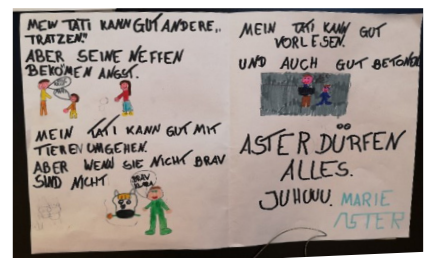 MEIN TATI KANN GUT ANDERE
TRATZEN.
ABER SEINE NEFFEN
BEKOMEN ANGST.
MEIN TATI KANN GUT MIT
TIEREN UMGEHEN.
ABER WENN SIE NICHT BRAV
SIND NICHT
BRAV
MEIN TATI KANN GUT
VORLESEN.
UND AUCH GUT BETONEN
ASTER DÜRFEN
ALLES.
JUHUUU. MARIE
ASTER